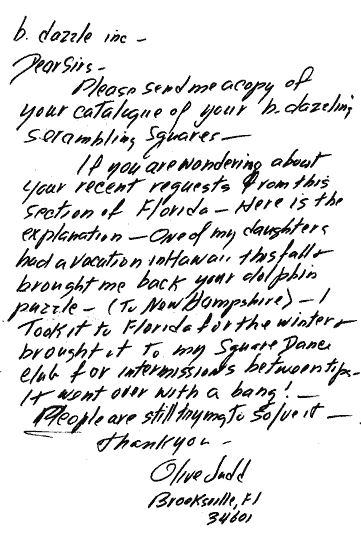 b. dazzle inc -
Dear Sirs -
Please send me a copy of
your catalogue of your b. dazzling
scrambling squares -
If you are wondering about
your recent requests from this
section of Florida - Here is the
explanation - One of my daughters
had a vacation in Hawaii this fall &
brought me back your dolphin
puzzle - (To New Hampshire) - I
Took it to Florida for the winter &
brought it To my Square Dance
club for intermissions between tips -
It went over with a bang! -
People are still trying to solve it -
Thank you -
Olive Judd
Brooksville, Fl
34601